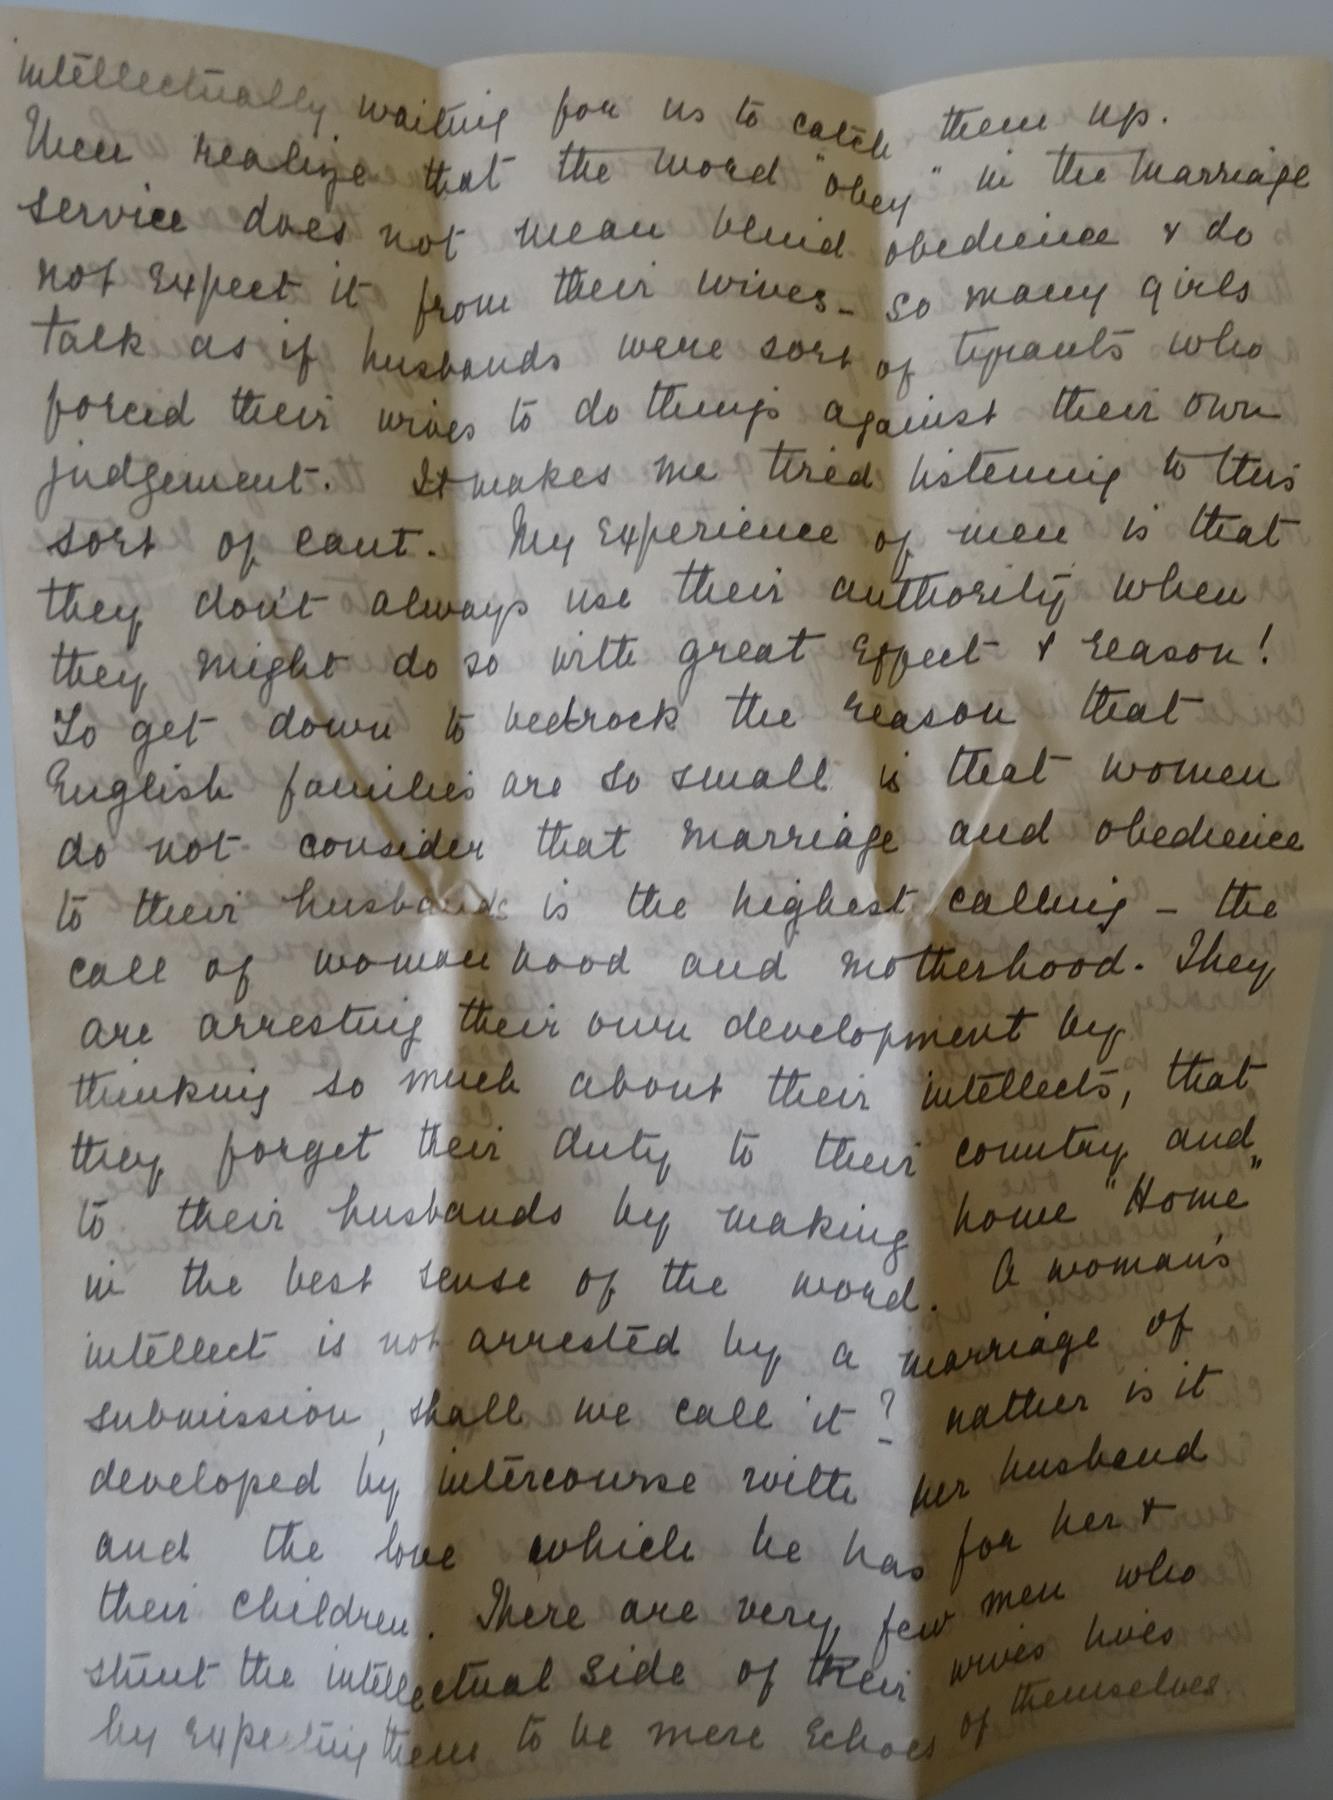 intellectually waiting for us to catch them up.
Men realize that the word "obey" in the marriage
service does not mean blind obedience & do
not expect it from their wives - so many girls
talk as if husbands were sort of tyrants who
forced their wives to do things against their own
judgement. It makes me tired listening to this
sort of cant. My experience of men is that
they don't always use their authority when
they might do so with great effect & reason!
To get down to bedrock the reason that
English families are so small is that women
do not consider that marriage and obedience
to their husbands is the highest calling - the
call of womanhood and motherhood. They
are arresting their own development by
thinking so much about their intellects, that
they forget their duty to their country and
to their husbands by making home "Home"
in the best sense of the word. A woman's
intellect is not arrested by a marriage of
submission, shall we call it? rather is it
developed by intercourse with her husband
and the love which he has for her &
their children. There are very few men who
stunt the intellectual side of their wives lives
by expecting them to be mere echoes of themselves.